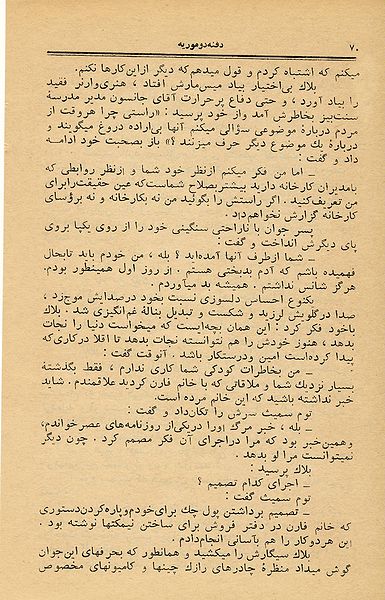 ۷۰ دفنه‌دوموریه
میکنم که اشتباه کردم و قول میدهم‌که دیگر ازاین‌کارها نکنم.
بلاك بی‌اختیار بیاد میس‌مارش افتاد ، هنری‌وارنر فقید
را بیاد آورد ، و حتی دفاع پرحرارت آقای جانسون مدیر مدرسهٔ
سنت‌بیز بخاطرش آمد واز خود پرسید : «راستی چرا هروقت از
مردم دربارهٔ موضوعی سؤالی میکنم آنها بی‌اراده دروغ میگویند و
دربارهٔ یك موضوع دیگر حرف میزنند ؟» باز بصحبت خود ادامه
داد و گفت :
ــ اما من فکر میکنم ازنظر خود شما و ازنظر روابطی که
بامدیران کارخانه دارید بیشتربصلاح شماست‌که عین حقیقت‌رابرای
من تعریف‌کنید . اگر راستش را بگوئید من نه بکارخانه و نه برؤسای
کارخانه گزارش نخواهم‌داد.
پسر جوان با ناراحتی سنگینی خود را از روی یکپا بروی
پای دیگرش انداخت و گفت :
ــ شما ازطرف آنها آمده‌اید ؟ بله ، من خودم باید تابحال
فهمیده باشم که آدم بدبختی هستم . از روز اول همینطور بودم.
هرگز شانس نداشتم . همیشه بد میاوردم .
یکنوع احساس دلسوزی نسبت بخود درصدایش موج‌زد ،
صدا درگلویش لرزید و شکست و تبدیل بنالهٔ غم‌انگیزی شد . بلاك
باخود فکر کرد : این همان بچه‌ایست که میخواست دنیا را نجات
بدهد ، هنوز خودش را هم نتوانسته نجات بدهد تا اقلا درکاری‌که
پیدا کرده‌است امین ودرستکار باشد . آنوقت گفت :
ــ من بخاطرات کودکی شما کاری ندارم ، فقط بگذشتهٔ
بسیار نزدیك شما و ملاقاتی که با خانم فارن کردید علاقمندم . شاید
خبر نداشته باشید که این خانم مرده است.
توم سمیث سرش را تکان‌داد و گفت :
ــ بله ، خبر مرگ اورا دریکی‌از روزنامه‌های عصرخواندم،
وهمین‌خبر بود که مرا دراجرای آن فکر مصمم کرد . چون دیگر
نمیتوانست مرا لو بدهد .
بلاك پرسید :
ــ اجرای کدام تصمیم ؟
توم سمیث گفت :
ــ تصمیم برداشتن پول چك برای‌خودم‌وپاره‌کردن‌دستوری
که خانم فارن در دفتر فروش برای ساختن نیمکتها نوشته بود .
این هردوکار را هم بآسانی انجام‌دادم .
بلاك سیگارش را میکشید و همانطور که بحرفهای این‌جوان
گوش میداد منظرهٔ چادرهای رازك چینها و کامیونهای مخصوص